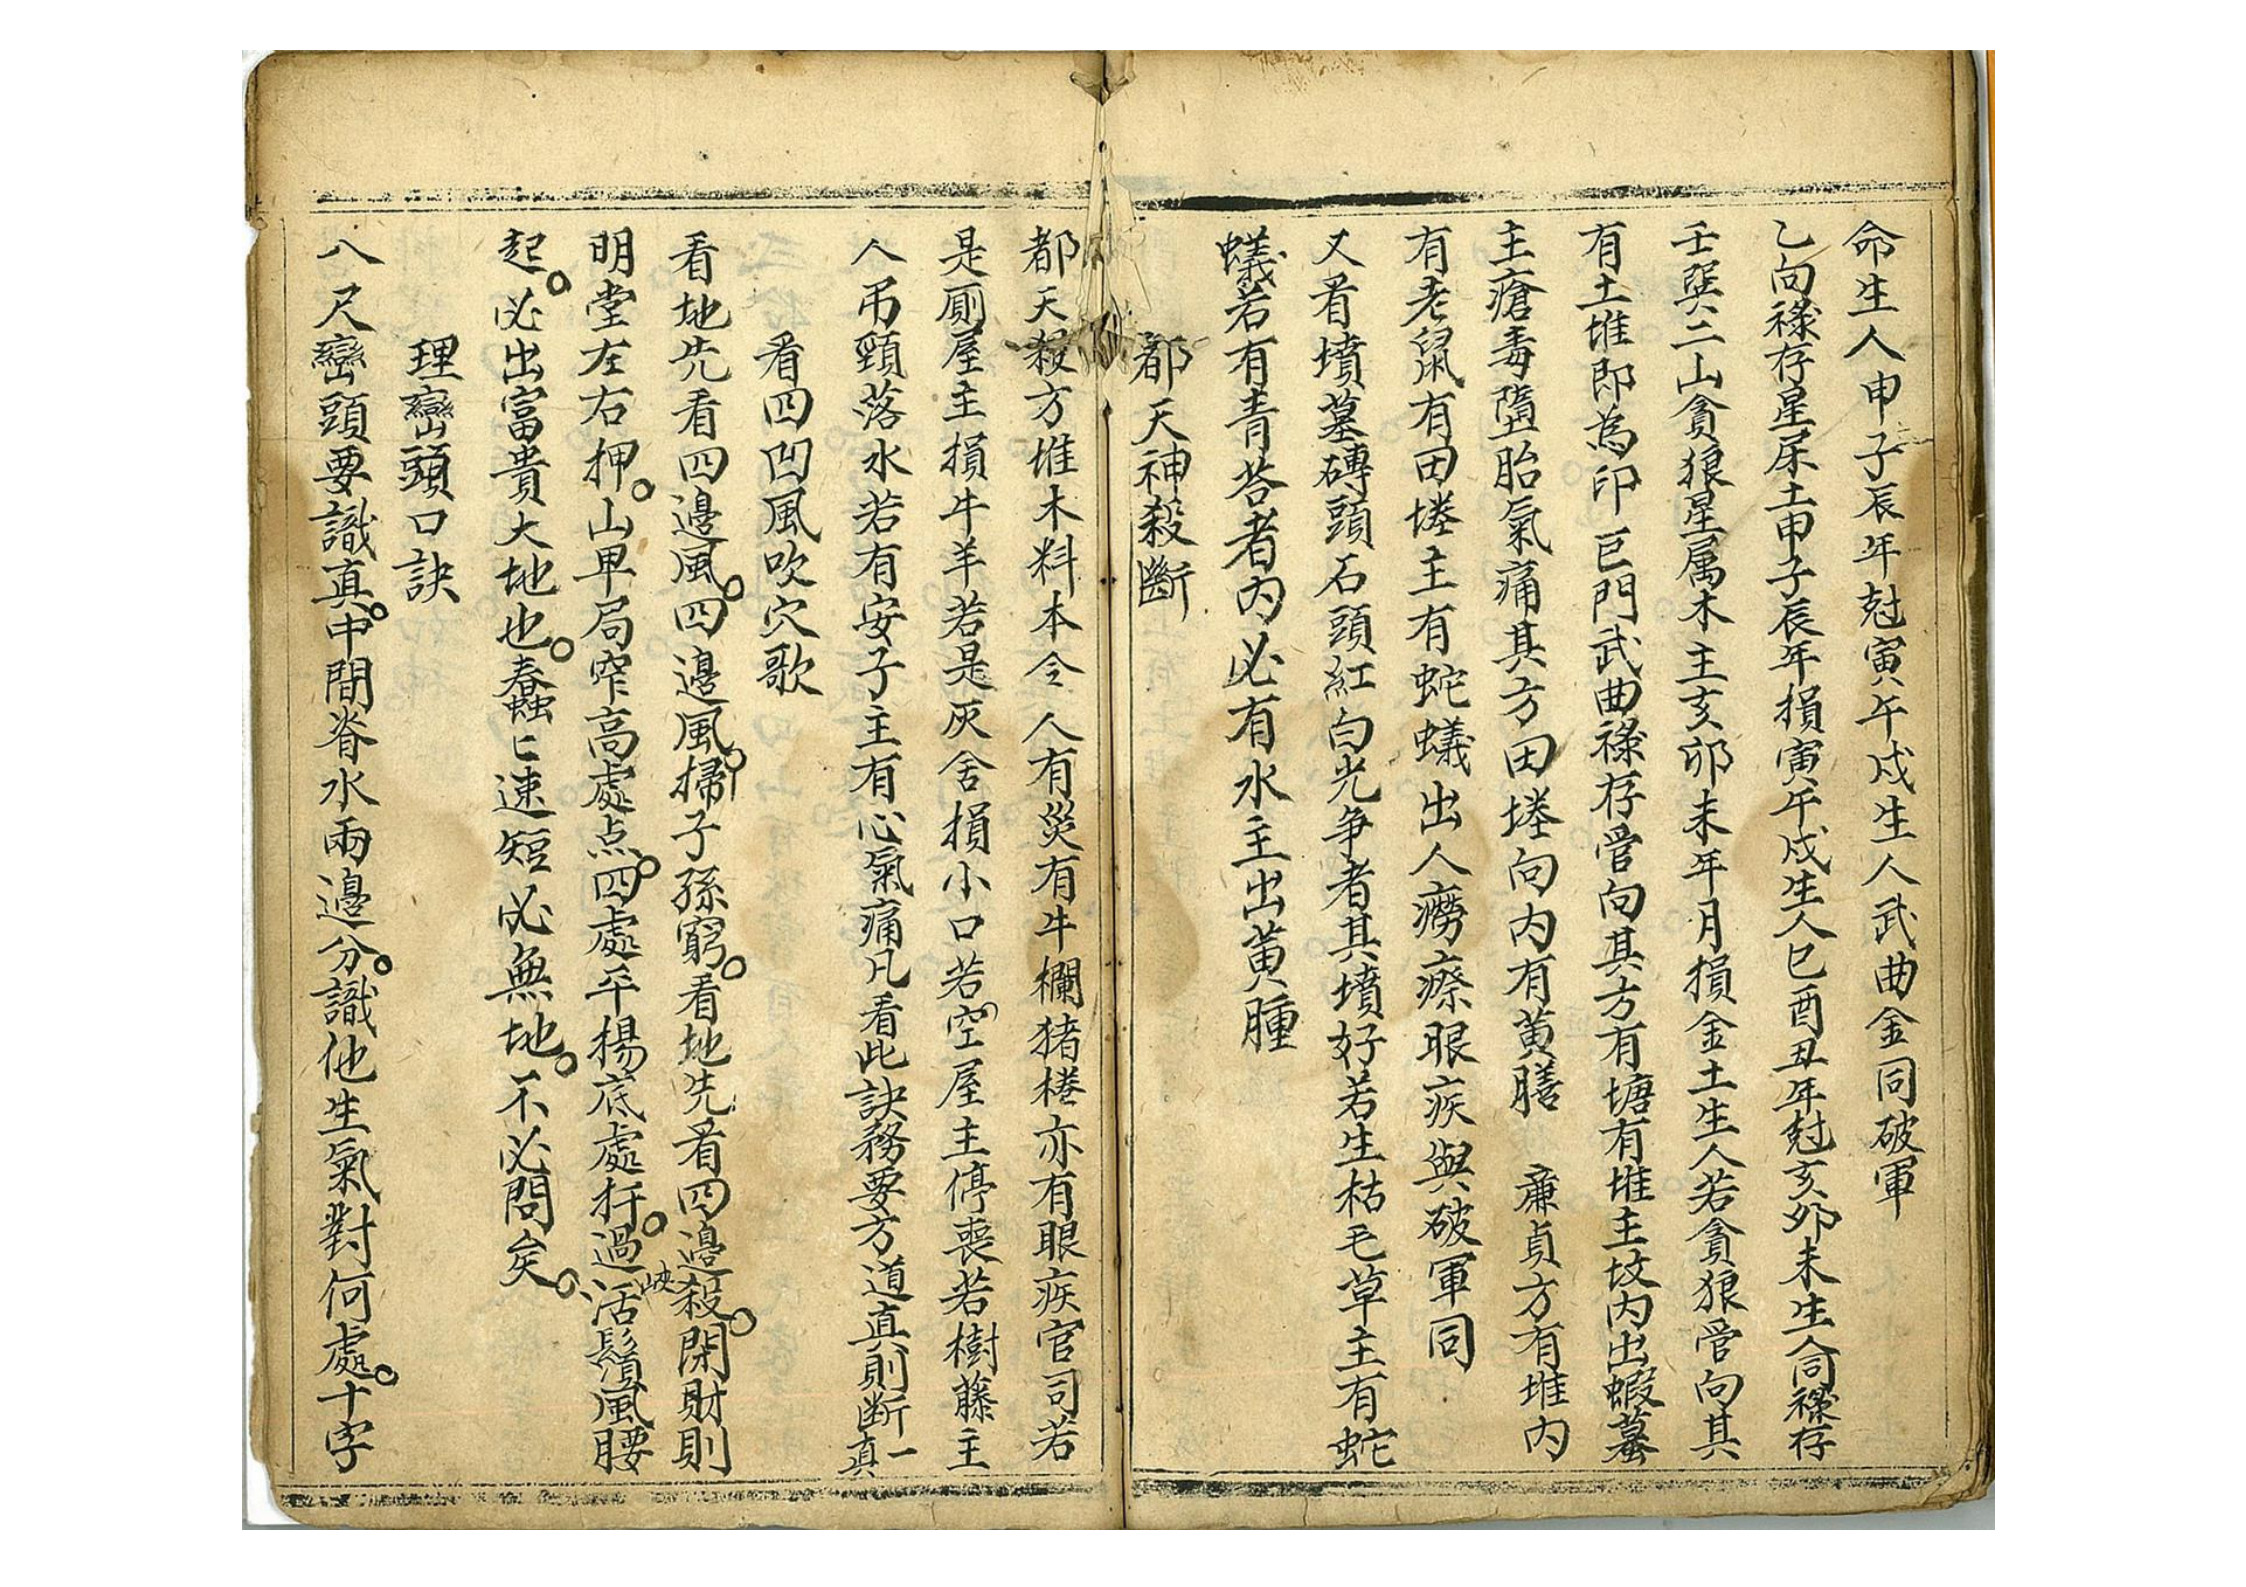 命生人申子辰年尅寅午戌生人武曲金同破軍
乙向祿存星屬土申子辰年損寅午戌生人巳酉丑年尅亥夘未生人同祿存
壬巽二山貪狼星属木主亥卯未年月損金土生人若貪狼管向其
有土堆即為印巨門武曲祿存管向其方有塘有堆主坟内出蝦蟇
主瘡毒墮胎氣痛其方田塂向内有黄膳 廉貞方有堆内
有老鼠有田塂主有蛇蟻出人癆瘵眼疾與破軍同
又看墳墓磚頭石頭紅白光争者其墳好若生枯毛草主有蛇
蟻若有青苔者内必有水主出黄腫
都天神殺斷
都天殺方堆木料本令人有災有牛欄猪棬亦有眼疾官司若
是厠屋主損牛羊若是灰舍損小口若空屋主停喪若樹藤主
人吊頸落水若有安子主有心氣痛凡看此訣務要方道真則断一真
看四凹風吹穴歌
看地先看四邊風。四邊風。掃子孫窮。看地先看四邊殺。閑財則
明堂左右押。山单局窄高處点。四處平揚底處扦。過峡活鬚風腰
起。必出富貴大地也。蠢蠢匕速短必無地。不必問矣。
理巒頭口訣
八尺巒頭要識真。中間脊水兩邊分。識他生氣對何處。十字